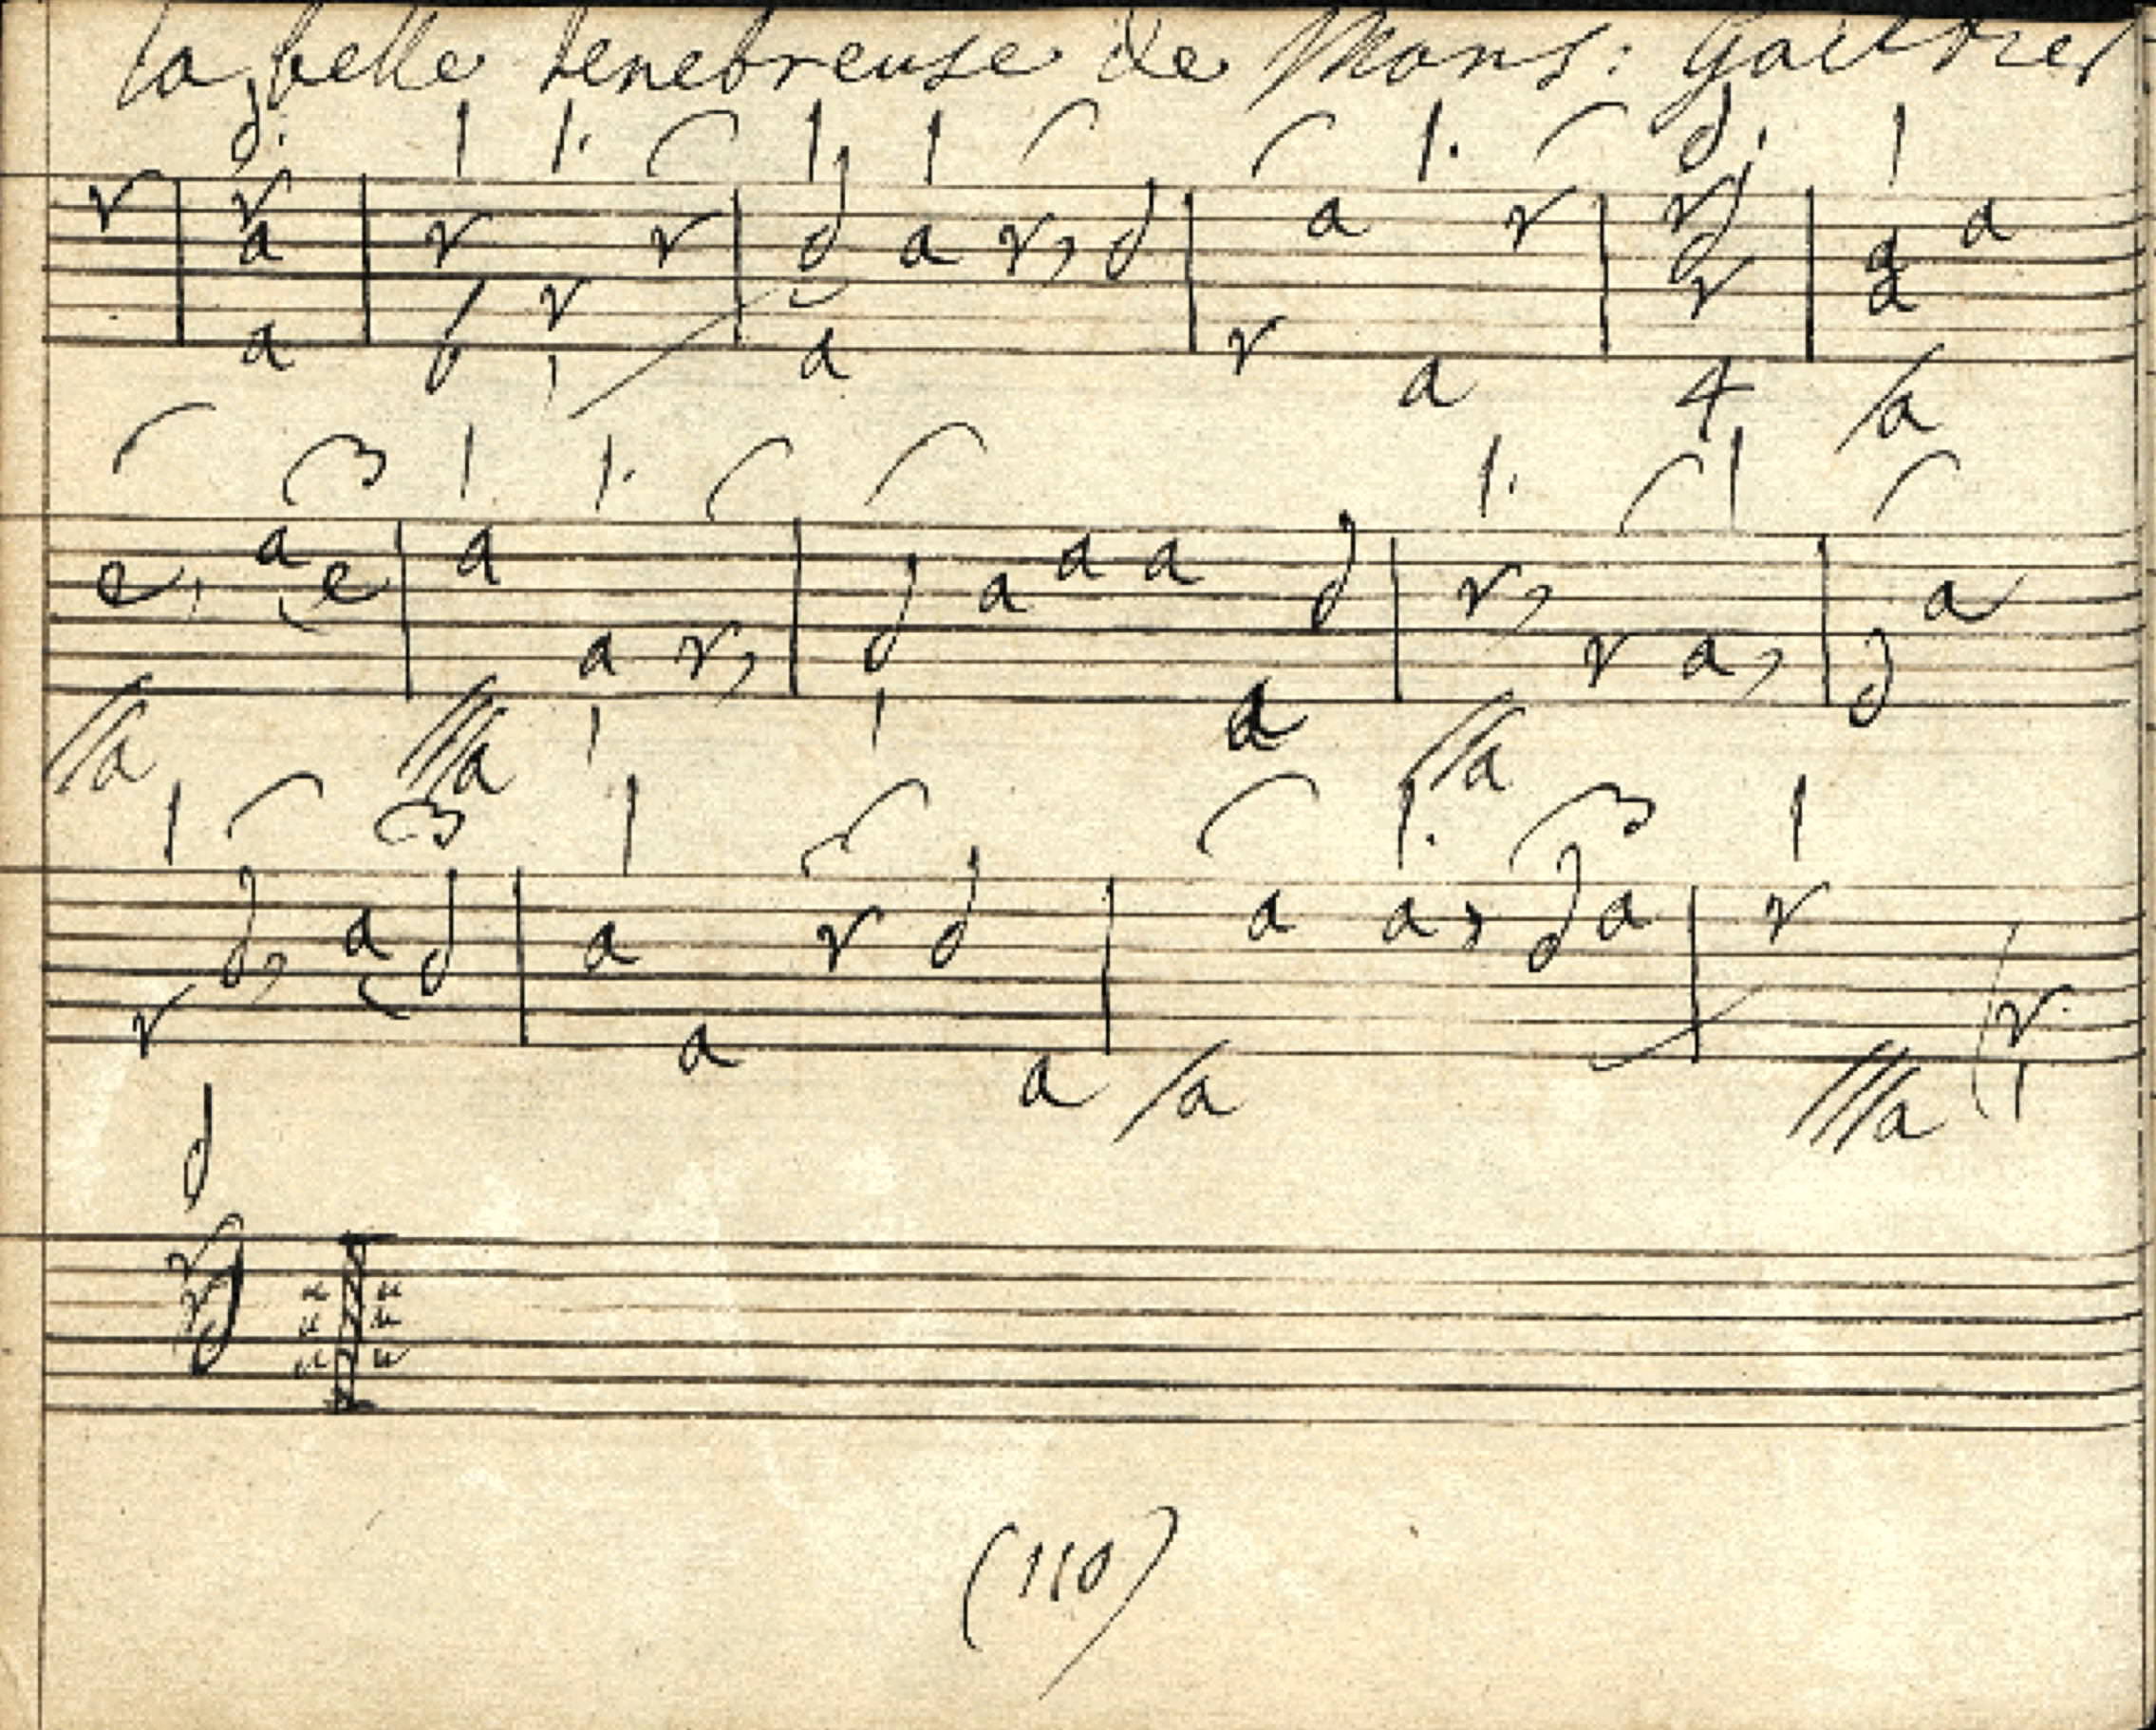 la belle tenebreuse de Mons: Gaultier
r r a a r b r r d a a r, d r a a r r d r 4 a a a /a
e, a e //a a ///a a r, d a a a a d r, //a r a, d a
r d, a d a a r d a /a a a, d a r ///a r
d r r d
(110)